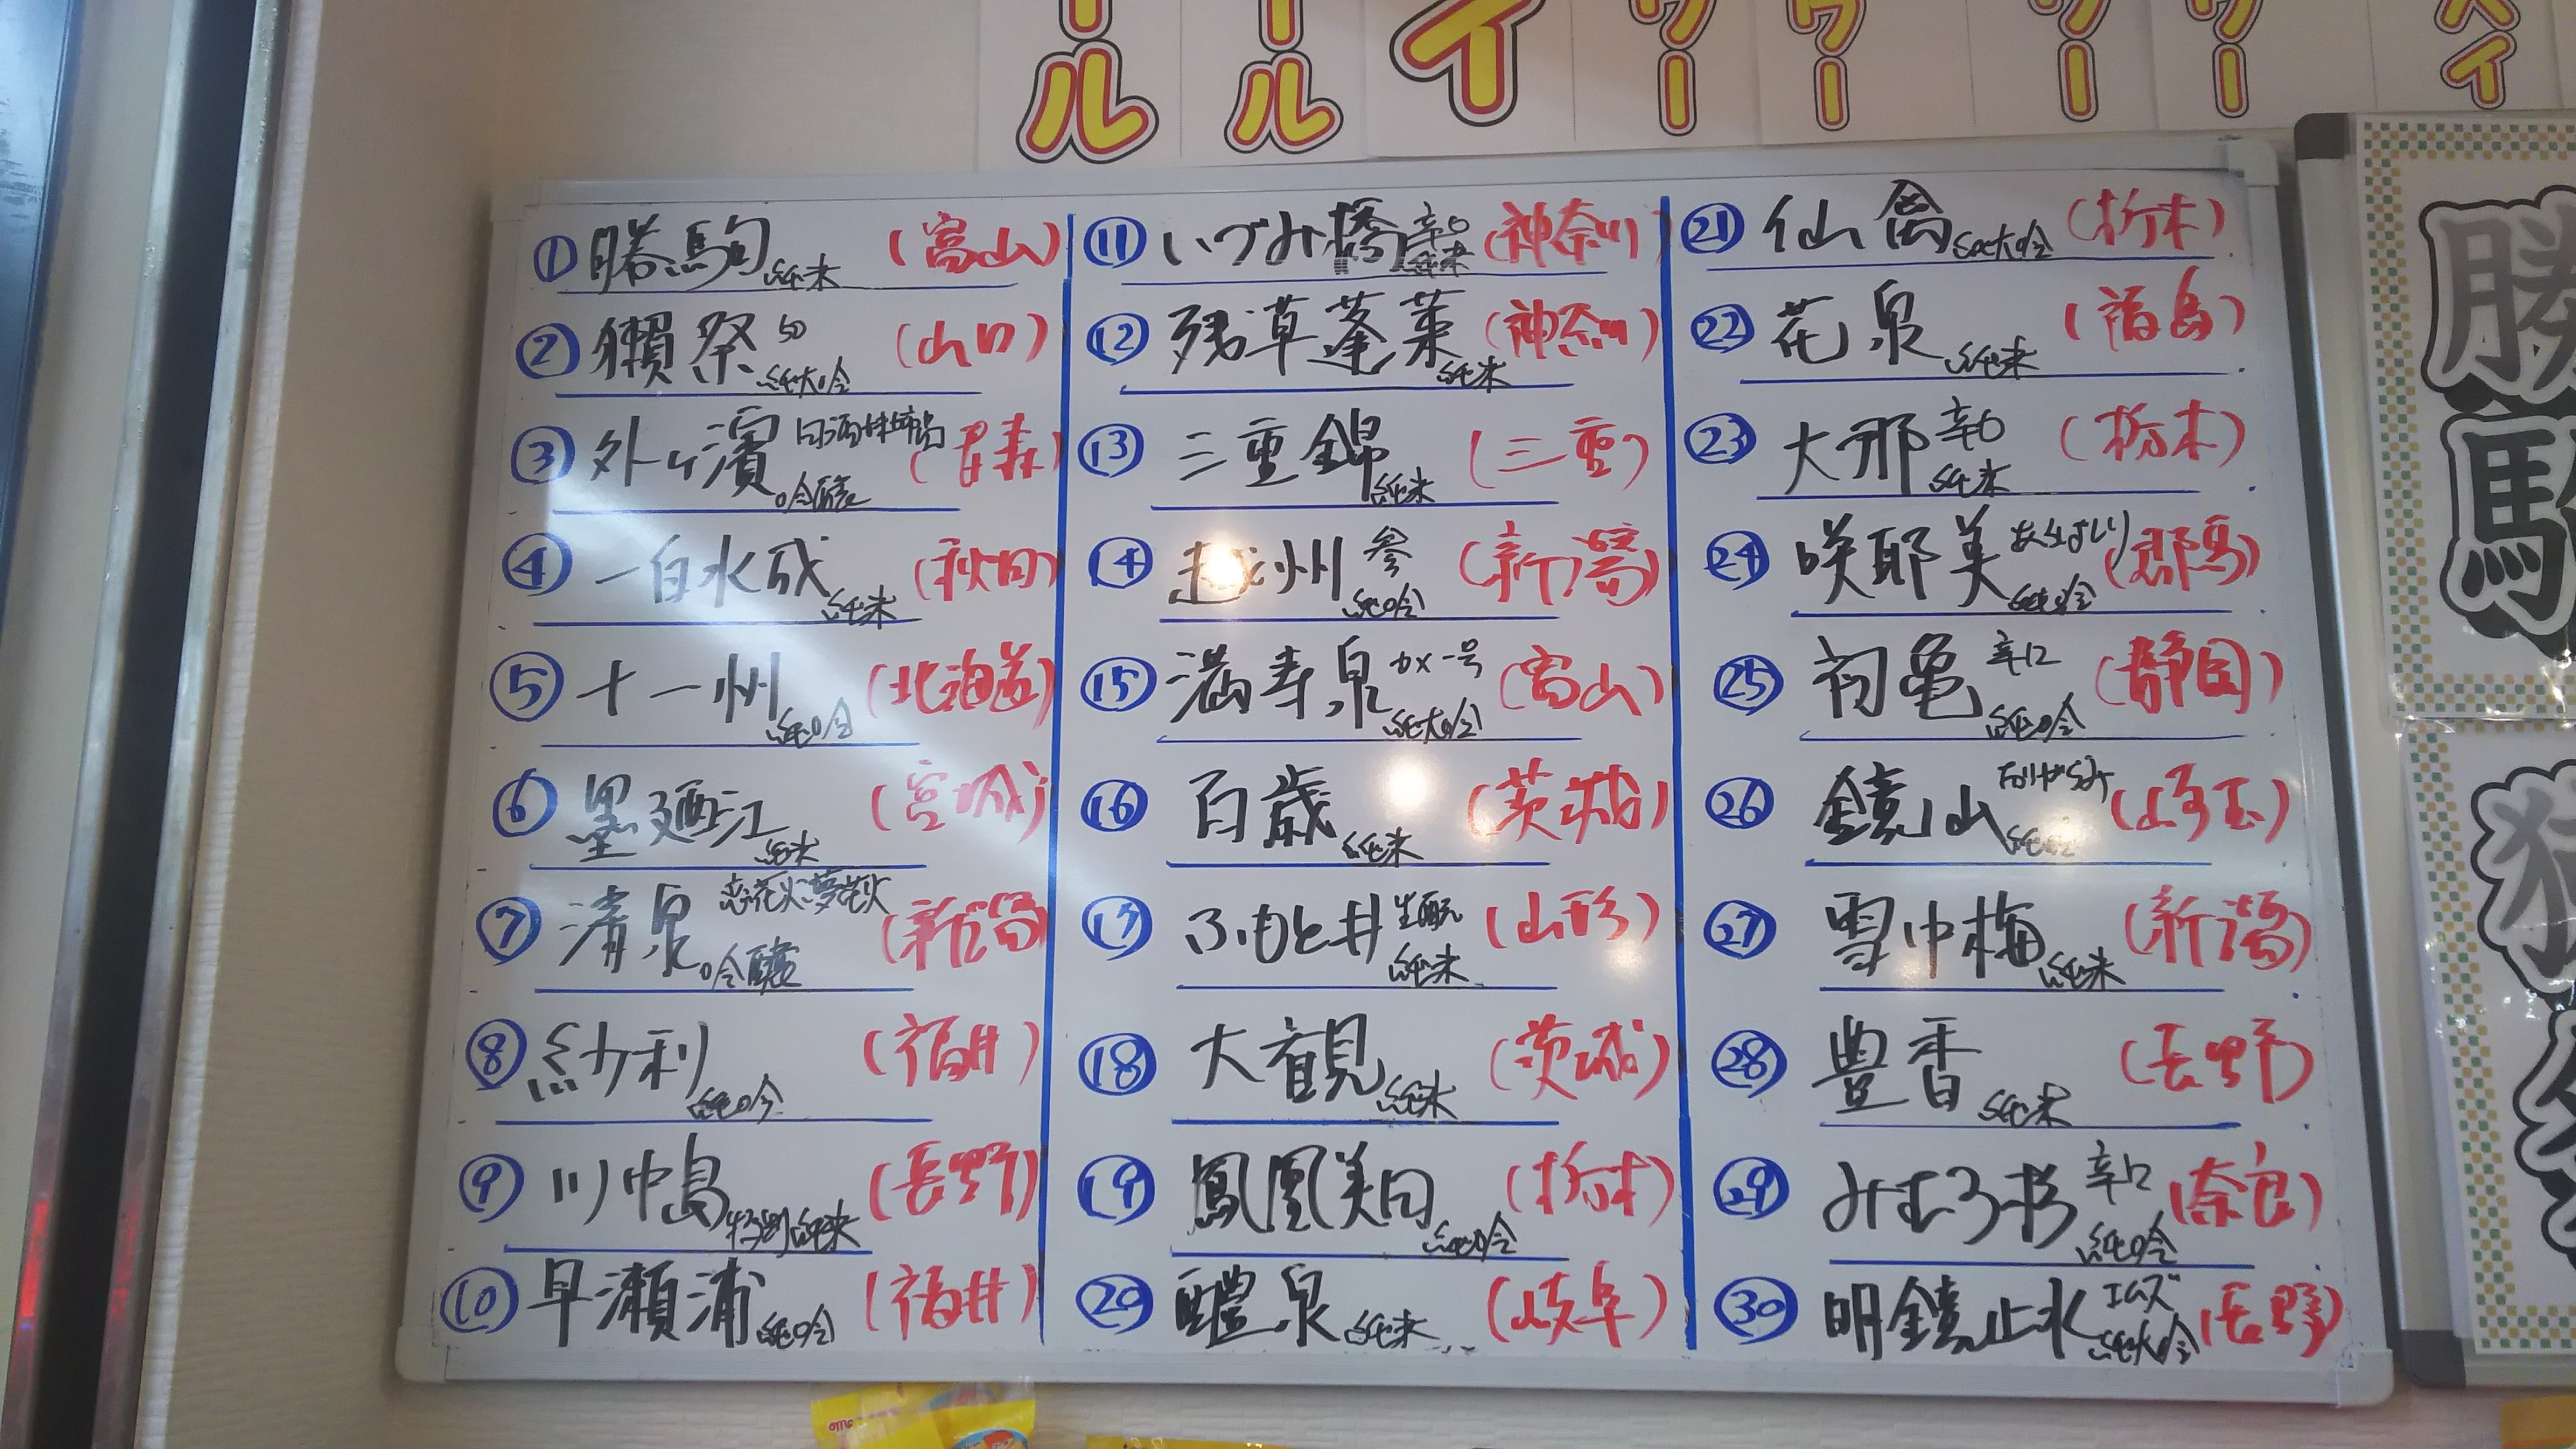 ール
ール
イ
ワー
ワー
ワー
ワー
ハイ
① 勝駒 純米 (富山)
② 獺祭 50 純大吟 (山口)
③ 外ヶ濱 吟醸 (青森)
④ 一白水成 純米 (秋田)
⑤ 十一州 純吟 (北海道)
⑥ 墨廼江 純米 (宮城)
⑦ 清泉 恋花火夢花火 吟醸 (新潟)
⑧ 紗利 純吟 (福井)
⑨ 川中島 特別純米 (長野)
⑩ 早瀬浦 純吟 (福井)
⑪ いづみ橋 辛口 純米 (神奈川)
⑫ 残草蓬莱 純米 (神奈川)
⑬ 三重錦 純米 (三重)
⑭ 越州 参 純吟 (新潟)
⑮ 満寿泉 純大吟 (富山)
⑯ 百歳 純米 (茨城)
⑰ ふもと井 生酛 純米 (山形)
⑱ 大観 純米 (茨城)
⑲ 鳳凰美田 純吟 (栃木)
⑳ 醴泉 純米 (岐阜)
㉑ 仙禽 純大吟 (栃木)
㉒ 花泉 純米 (福島)
㉓ 大那 辛口 純米 (栃木)
㉔ 咲耶美 純吟 (群馬)
㉕ 初亀 辛口 純吟 (静岡)
㉖ 鏡山 (埼玉)
㉗ 雪中梅 純米 (新潟)
㉘ 豊香 純米 (長野)
㉙ みむろ杉 辛口 純吟 (奈良)
㉚ 明鏡止水 エムズ 純大吟 (長野)